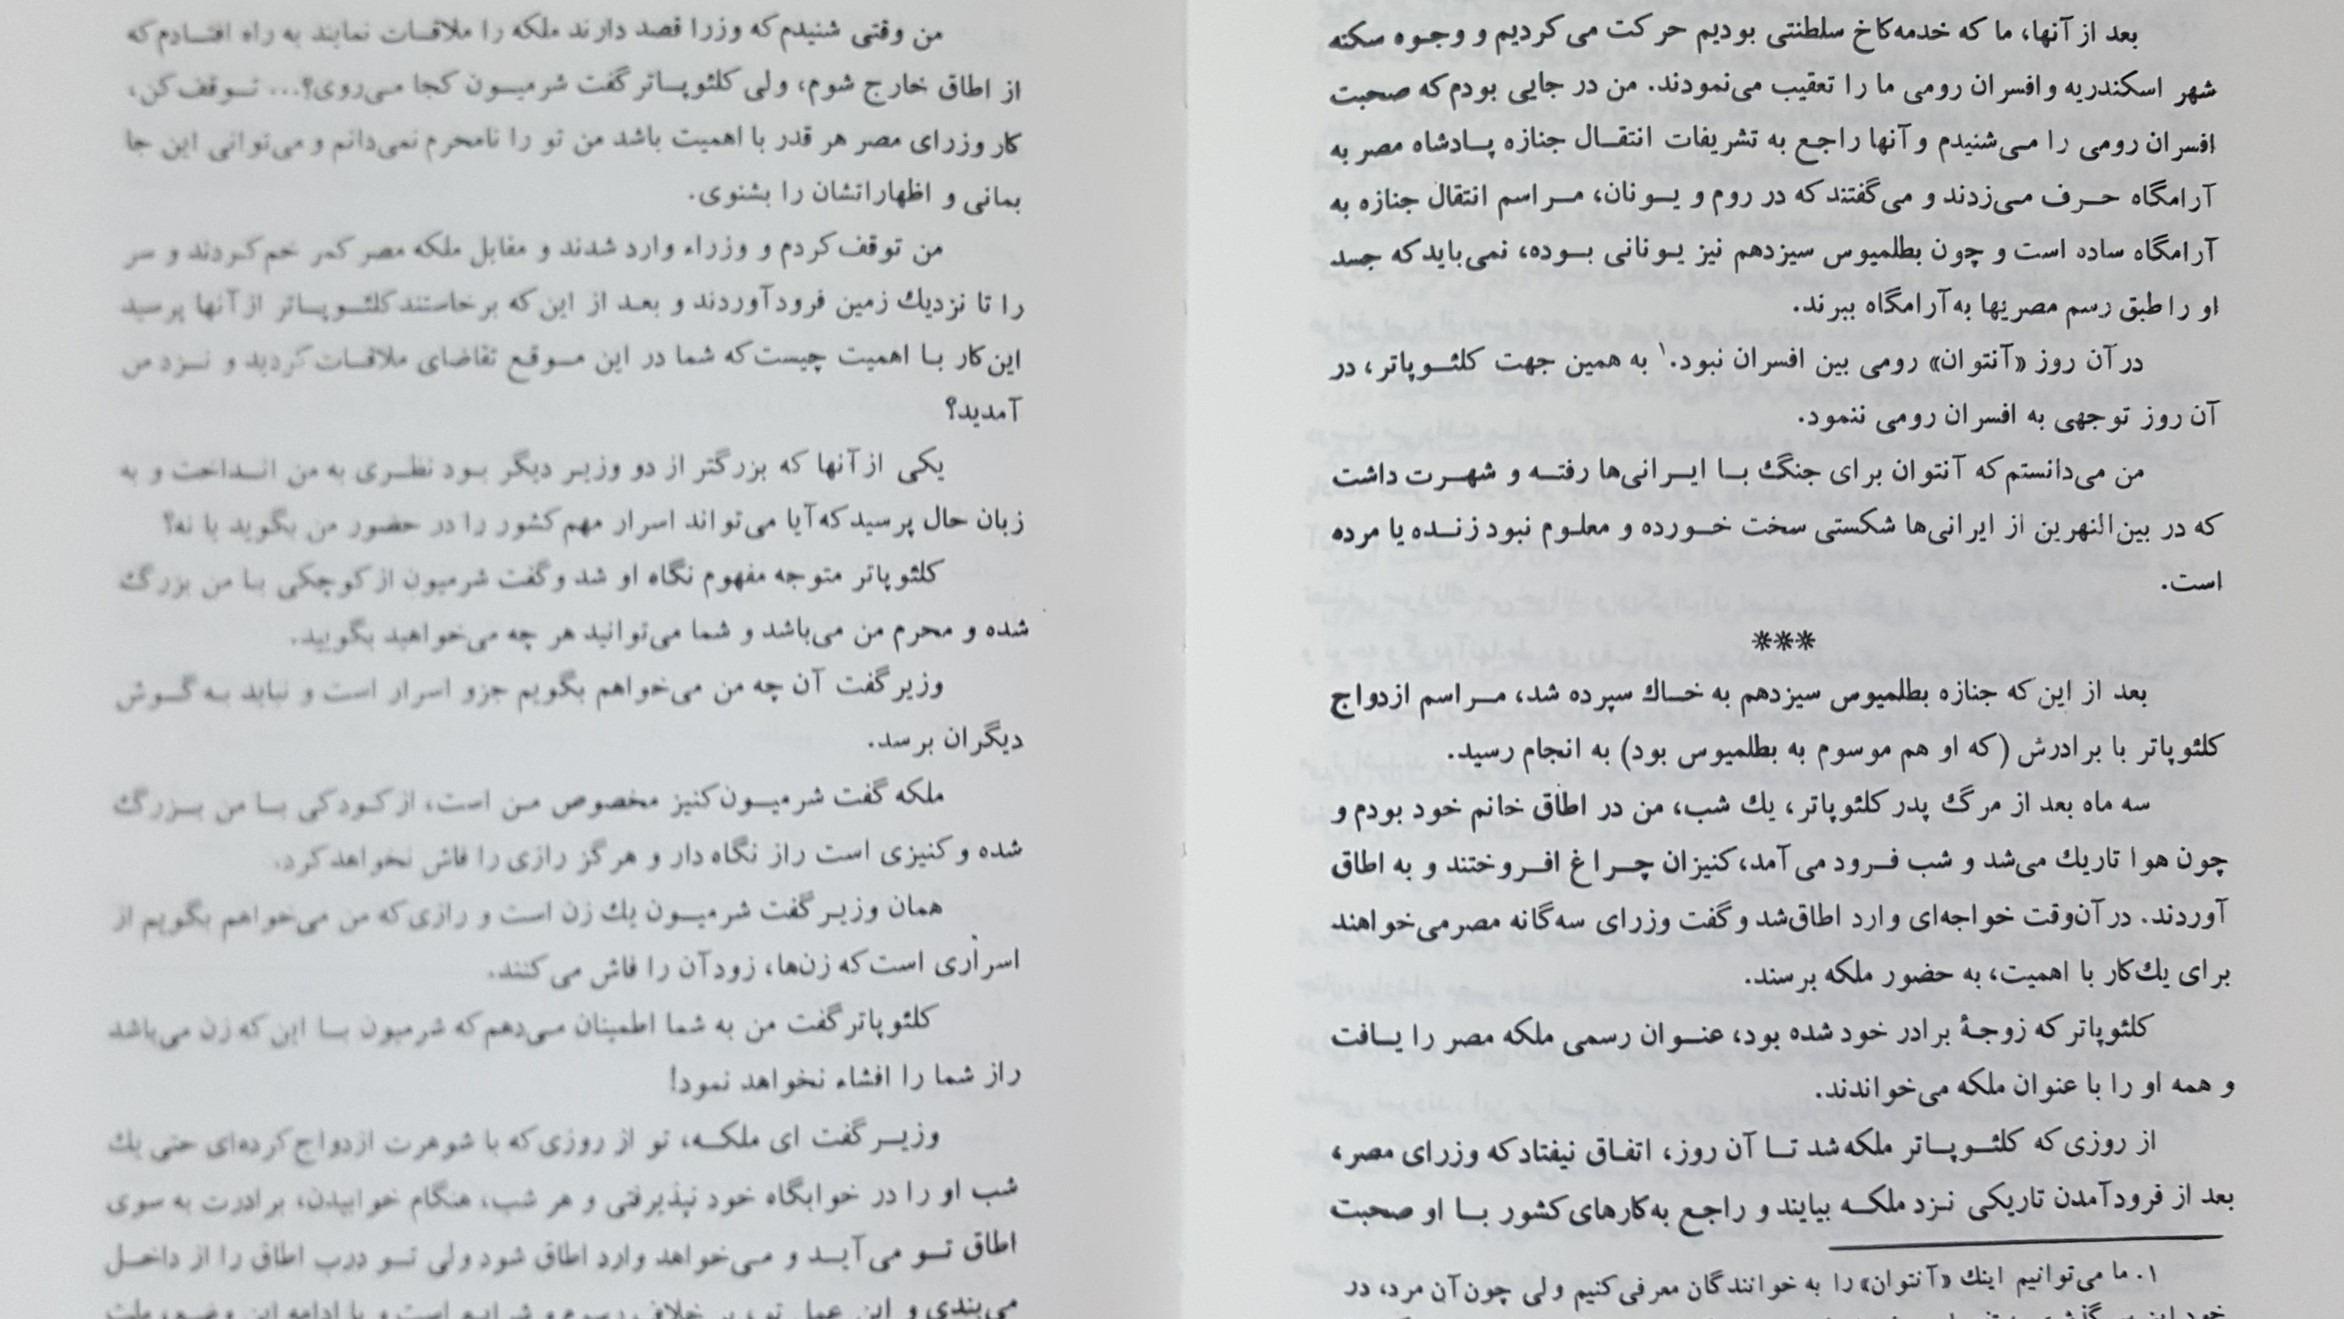 بعد از آنها، ما که خدمه کاخ سلطنتی بودیم حرکت می‌کردیم و وجوه سکنه
شهر اسکندریه و افسران رومی ما را تعقیب می‌نمودند. من در جایی بودم که صحبت
افسران رومی را می‌شنیدم و آنها راجع به تشریفات انتقال جنازه پادشاه مصر به
آرامگاه حرف می‌زدند و می‌گفتند که در روم و یونان، مراسم انتقال جنازه به
آرامگاه ساده است و چون بطلمیوس سیزدهم نیز یونانی بوده، نمی‌باید که جسد
او را طبق رسم مصریها به آرامگاه ببرند.
در آن روز «آنتوان» رومی بین افسران نبود.۱ به همین جهت کلئوپاتر، در
آن روز توجهی به افسران رومی ننمود.
من می‌دانستم که آنتوان برای جنگ با ایرانی‌ها رفته و شهرت داشت
که در بین‌النهرین از ایرانی‌ها شکستی سخت خورده و معلوم نبود زنده یا مرده
است.
***
بعد از این که جنازه بطلمیوس سیزدهم به خاك سپرده شد، مراسم ازدواج
کلئوپاتر با برادرش (که او هم موسوم به بطلمیوس بود) به انجام رسید.
سه ماه بعد از مرگ پدر کلئوپاتر، یك شب، من در اطاق خانم خود بودم و
چون هوا تاریك می‌شد و شب فرود می‌آمد، کنیزان چراغ افروختند و به اطاق
آوردند. در آن‌وقت خواجه‌ای وارد اطاق شد و گفت وزرای سه‌گانه مصر می‌خواهند
برای یك کار با اهمیت، به حضور ملکه برسند.
کلئوپاتر که زوجهٔ برادر خود شده بود، عنوان رسمی ملکه مصر را یافت
و همه او را با عنوان ملکه می‌خواندند.
از روزی که کلئوپاتر ملکه شد تا آن روز، اتفاق نیفتاد که وزرای مصر،
بعد از فرود آمدن تاریکی نزد ملکه بیایند و راجع به کارهای کشور با او صحبت
۱. ما می‌توانیم اینك «آنتوان» را به خوانندگان معرفی کنیم ولی چون آن مرد، در
من وقتی شنیدم که وزرا قصد دارند ملکه را ملاقات نمایند به راه افتادم که
از اطاق خارج شوم، ولی کلئوپاتر گفت شرمیون کجا می‌روی؟... توقف کن،
کار وزرای مصر هر قدر با اهمیت باشد من تو را نامحرم نمی‌دانم و می‌توانی این جا
بمانی و اظهاراتشان را بشنوی.
من توقف کردم و وزراء وارد شدند و مقابل ملکه مصر کمر خم کردند و سر
را تا نزدیك زمین فرود آوردند و بعد از این که برخاستند کلئوپاتر از آنها پرسید
این کار با اهمیت چیست که شما در این موقع تقاضای ملاقات کردید و نزد من
آمدید؟
یکی از آنها که بزرگتر از دو وزیر دیگر بود نظری به من انداخت و به
زبان حال پرسید که آیا می‌تواند اسرار مهم کشور را در حضور من بگوید یا نه؟
کلئوپاتر متوجه مفهوم نگاه او شد و گفت شرمیون از کوچکی با من بزرگ
شده و محرم من می‌باشد و شما می‌توانید هر چه می‌خواهید بگویید.
وزیر گفت آن چه من می‌خواهم بگویم جزو اسرار است و نباید به گوش
دیگران برسد.
ملکه گفت شرمیون کنیز مخصوص من است، از کودکی با من بزرگ
شده و کنیزی است راز نگاه دار و هرگز رازی را فاش نخواهد کرد.
همان وزیر گفت شرمیون یك زن است و رازی که من می‌خواهم بگویم از
اسراری است که زن‌ها، زود آن را فاش می‌کنند.
کلئوپاتر گفت من به شما اطمینان می‌دهم که شرمیون با این که زن می‌باشد
راز شما را افشاء نخواهد نمود!
وزیر گفت ای ملکه، تو از روزی که با شوهرت ازدواج کرده‌ای حتی یك
شب او را در خوابگاه خود نپذیرفتی و هر شب، هنگام خوابیدن، برادرت به سوی
اطاق تو می‌آید و می‌خواهد وارد اطاق شود ولی تو درب اطاق را از داخل
می‌بندی و این عمل تو، بر خلاف رسوم و شرایع است و با ادامه این وضع، ملت